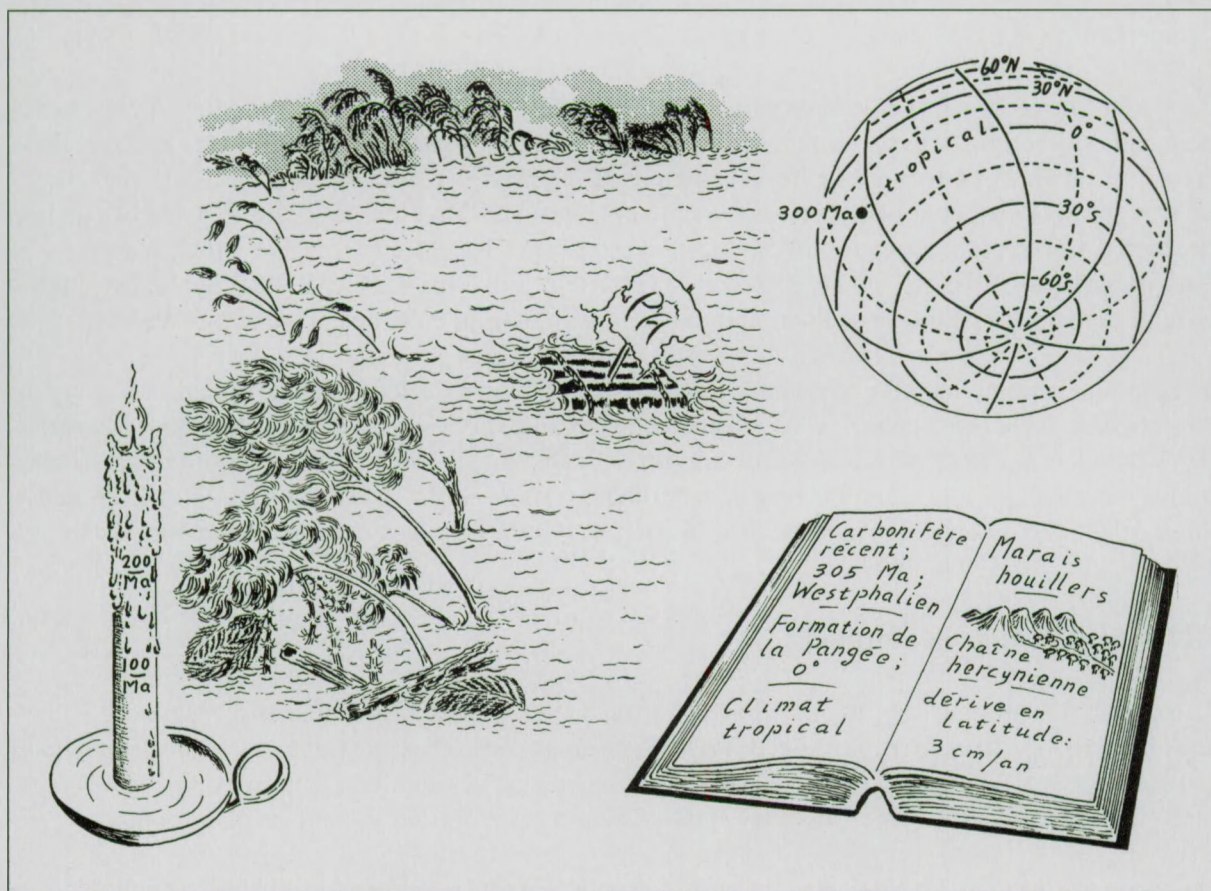 60°N
30°N
0°
tropical
300 Ma
30°S
60°S.
200
Ma
100
Ma
Carbonifère
récent;
305 Ma;
Westphalien
Formation de
la Pangée;
0°
Climat
tropical
Marais
houillers
Chaîne
hercynienne
dérive en
latitude:
3 cm/an